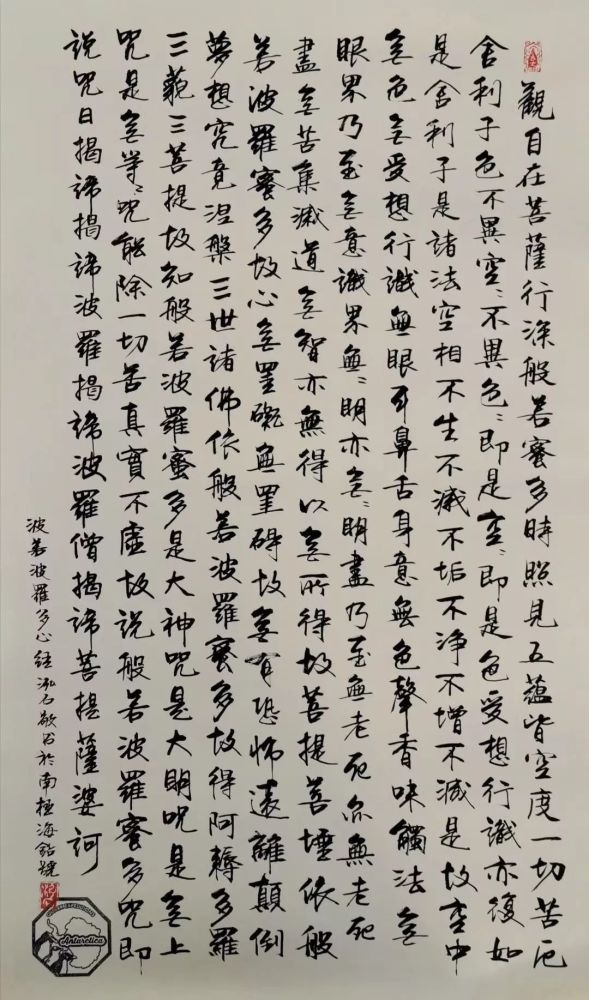 觀自在菩薩行深般若蜜多時照見五蘊皆空度一切苦厄
舍利子色不異空〻不異色〻即是空〻即是色受想行識亦復如
是舍利子是諸法空相不生不滅不垢不净不增不減是故空中
無色無受想行識無眼耳鼻舌身意無色聲香味觸法無
眼界乃至無意識界無〻明亦無〻明盡乃至無老死亦無老死
盡無苦集滅道無智亦無得以無所得故菩提菩埵依般
若波羅蜜多故心無罣礙無罣碍故無有恐怖遠離顛倒
夢想究竟涅槃三世諸佛依般若波羅蜜多故得阿耨多羅
三藐三菩提故知般若波羅蜜多是大神咒是大明咒是無上
咒是無等〻咒能除一切苦真實不虛故說般若波羅蜜多咒即
說咒曰揭諦揭諦波羅揭諦波羅僧揭諦菩提薩婆訶
波若波羅多心経泓石敬书於南極海鉆號
Antarctica